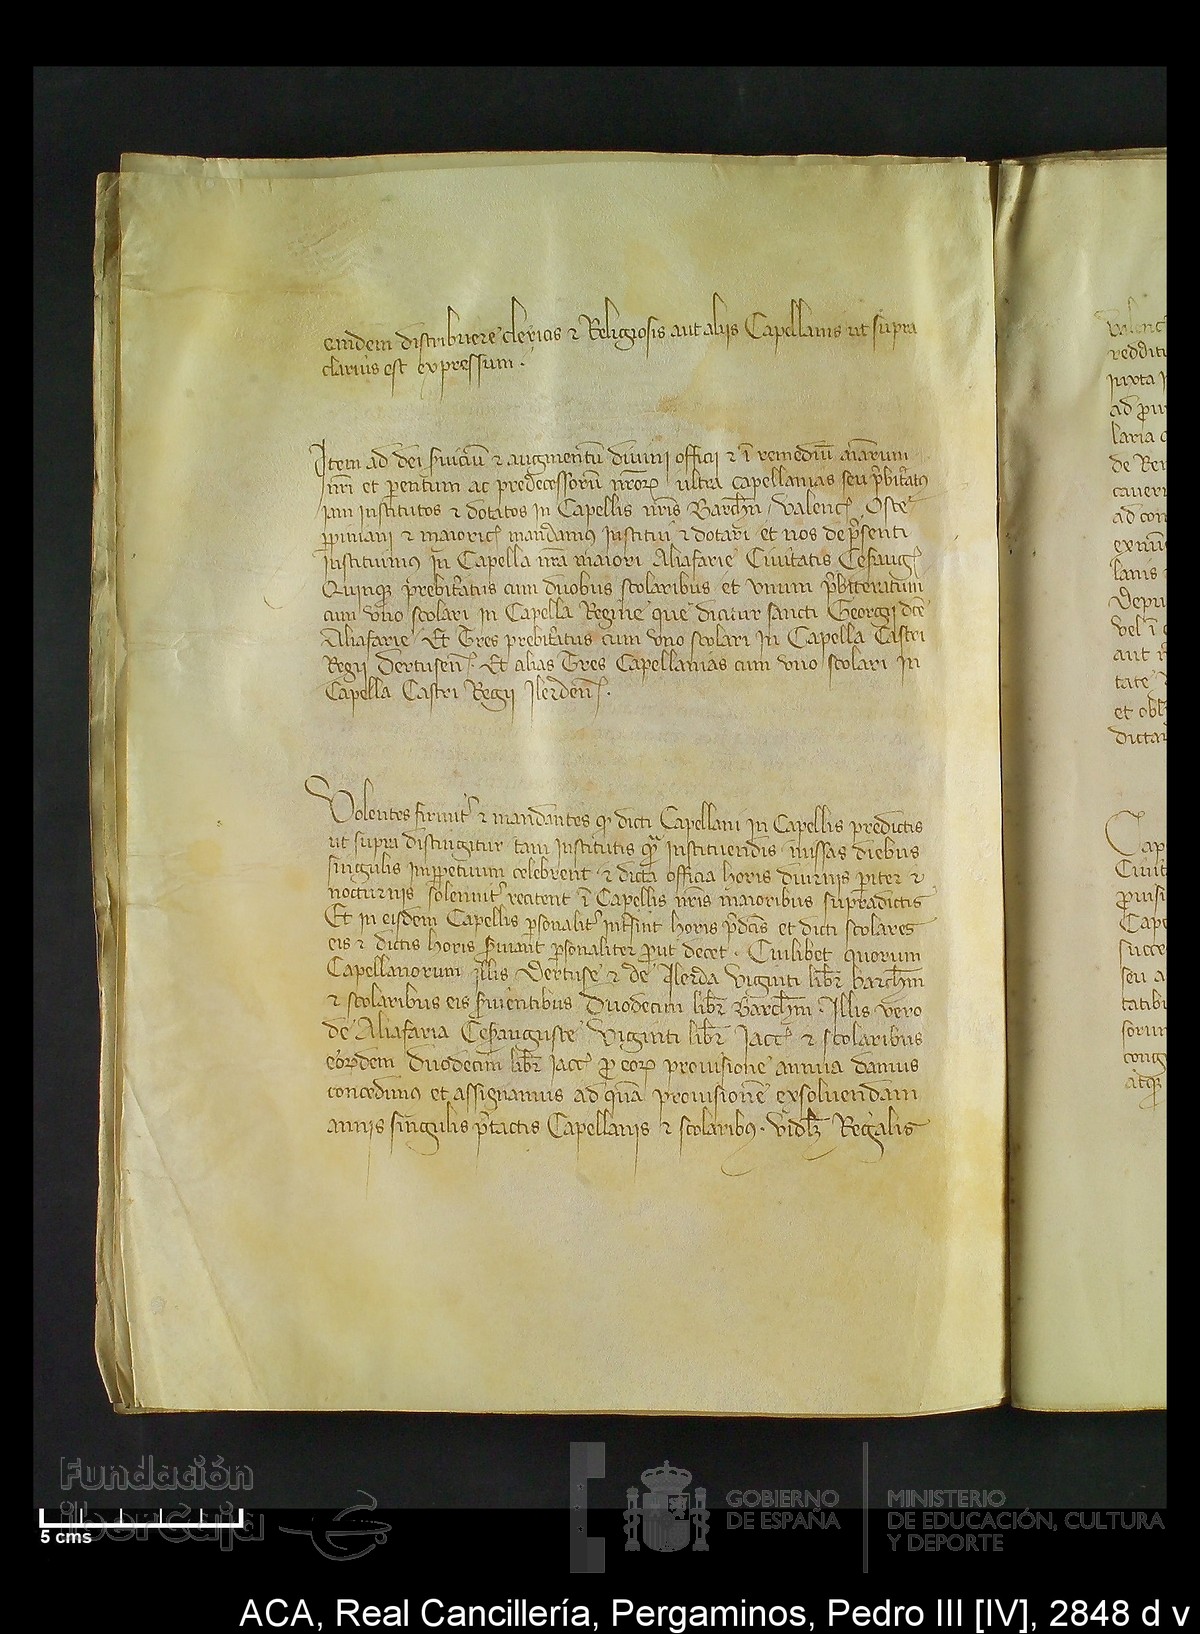 eiusdem distribuere clericis ⁊ Religiosis aut aliis Capellanis ut supra
clarius est expressum .
Item ad dei s̃uiciũ ⁊ augmentũ diuini officii ⁊ ĩ remediũ aĩarum
nr̃i et parentum ac predecessorũ nr̃oꝝ ultra capellanias seu p̃sbit̃atꝰ
iam institutos ⁊ dotatos in Capellis nr̃is Barchñ Valenc̃ Oste
ꝑpiniani ⁊ maioric̃ mandamus institui ⁊ dotari et nos de p̃senti
instituimꝰ in Capella nr̃a maiori Aliafarie Ciuitatis Ces̃aug̃
Quinqꝫ prebit̃atus cum duobus scolaribus et vnum p̃bit̃eratum
cum vno scolari in Capella Regine que dicitur sancti Georgii dc̃e
Aliafarie Et Tres prebit̃atus cum vno scolari in Capella Castri
Regii Dertusen̄ . Et alias Tres Capellanias cum vno scolari in
Capella Castri Regii Ilerden̄ .
Volentes firmit̃ ⁊ mandantes ꝙ dicti Capellani in Capellis predictis
ut supra distingitur tam institutis qͣ̃ instituendis missas diebus
singulis imꝑpetuum celebrent ⁊ dicta officia horis diurnis pariter ⁊
nocturnis solemnit̃ recitent ĩ Capellis nr̃is maioribus supradictis
Et in eisdem Capellis ꝑsonalit̃ int̃sint horis p̃dc̃is et dicti scolares
eis ⁊ dictis horis s̃uiant ꝑsonaliter ꝓut decet . Cuilibet quorum
Capellanorum Dertuse ⁊ de Ilerda viginti libr̃ barchm̃
⁊ scolaribus eis s̃uientibus Duodecim libr̃ Barchm̃ . Illis vero
de Aliafaria Ces̃auguste Viginti libr̃ Jacc̃ ⁊ scolaribus
eorũdem Duodecim libr̃ Jacc̃ ꝓ eoꝝ prouisione annua damus
concedimꝰ et assignamus ad quã prouisionẽ exsoluendam
annis singulis p̃tactis Capellanis ⁊ scolaribꝰ . vidlꝫ Regalis
Valenc̃
redditi
iuxta
ad
laria
de Re
cauer
ad con
lanis
Depu
vel ĩ
aut
tate
et
dictar
Cap
Ciuit
Cape
succe
seu a
tatib
sorum
cong
atqꝫ
Fundación
iberCaja
5 cms
GOBIERNO
DE ESPAÑA
MINISTERIO
DE EDUCACIÓN, CULTURA
Y DEPORTE
ACA, Real Cancillería, Pergaminos, Pedro III [IV], 2848 d v